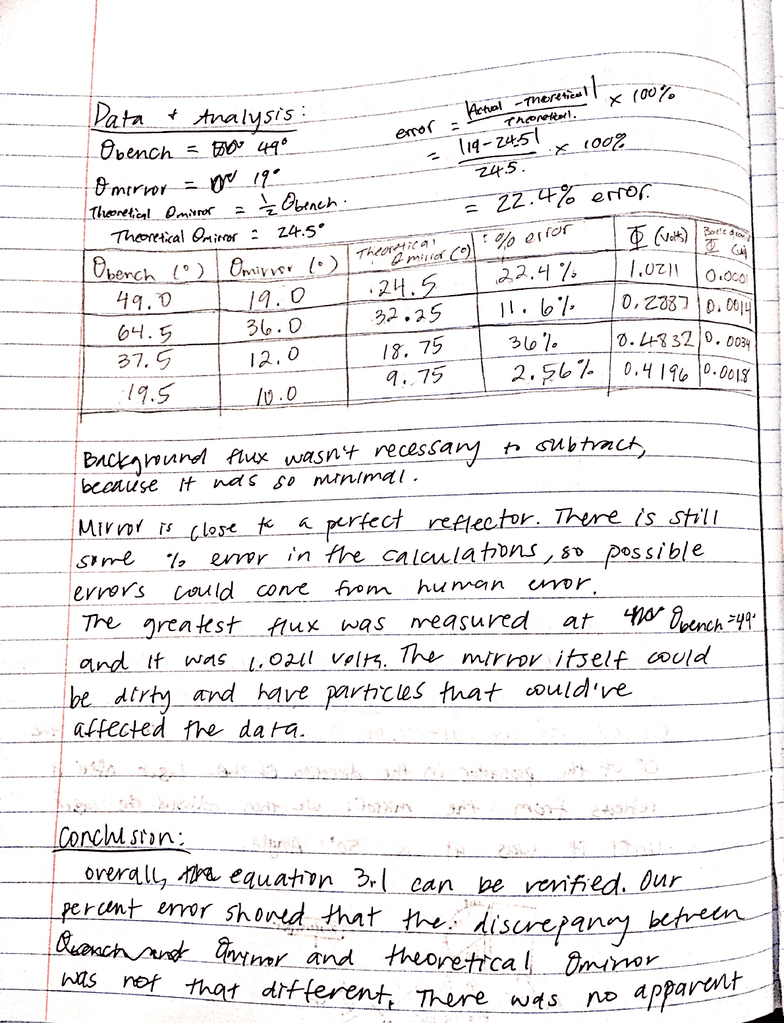 Data + Analysis:
θbench = 49°
θmirror = 19°
Theoretical θmirror = ½ θbench.
Theoretical θmirror = 24.5°
error = |Actual - Theoretical| / Theoretical. × 100%
= |19-24.5| / 24.5. × 100%
= 22.4% error.
θbench (°) θmirror (°) Theoretical θmirror (°) % error Φ (Volts) Background Φ
49.0 19.0 24.5 22.4% 1.0211 0.0001
64.5 36.0 32.25 11.6% 0.2887 0.0014
37.5 12.0 18.75 36% 0.4832 0.0034
19.5 10.0 9.75 2.56% 0.4196 0.0018
Background flux wasn't necessary to subtract,
because it was so minimal.
Mirror is close to a perfect reflector. There is still
some % error in the calculations, so possible
errors could come from human error.
The greatest flux was measured at θbench=49°
and it was 1.0211 volts. The mirror itself could
be dirty and have particles that would've
affected the data.
Conclusion:
overall, the equation 3.1 can be verified. Our
percent error showed that the discrepancy between
θmirror and theoretical θmirror
was not that different. There was no apparent